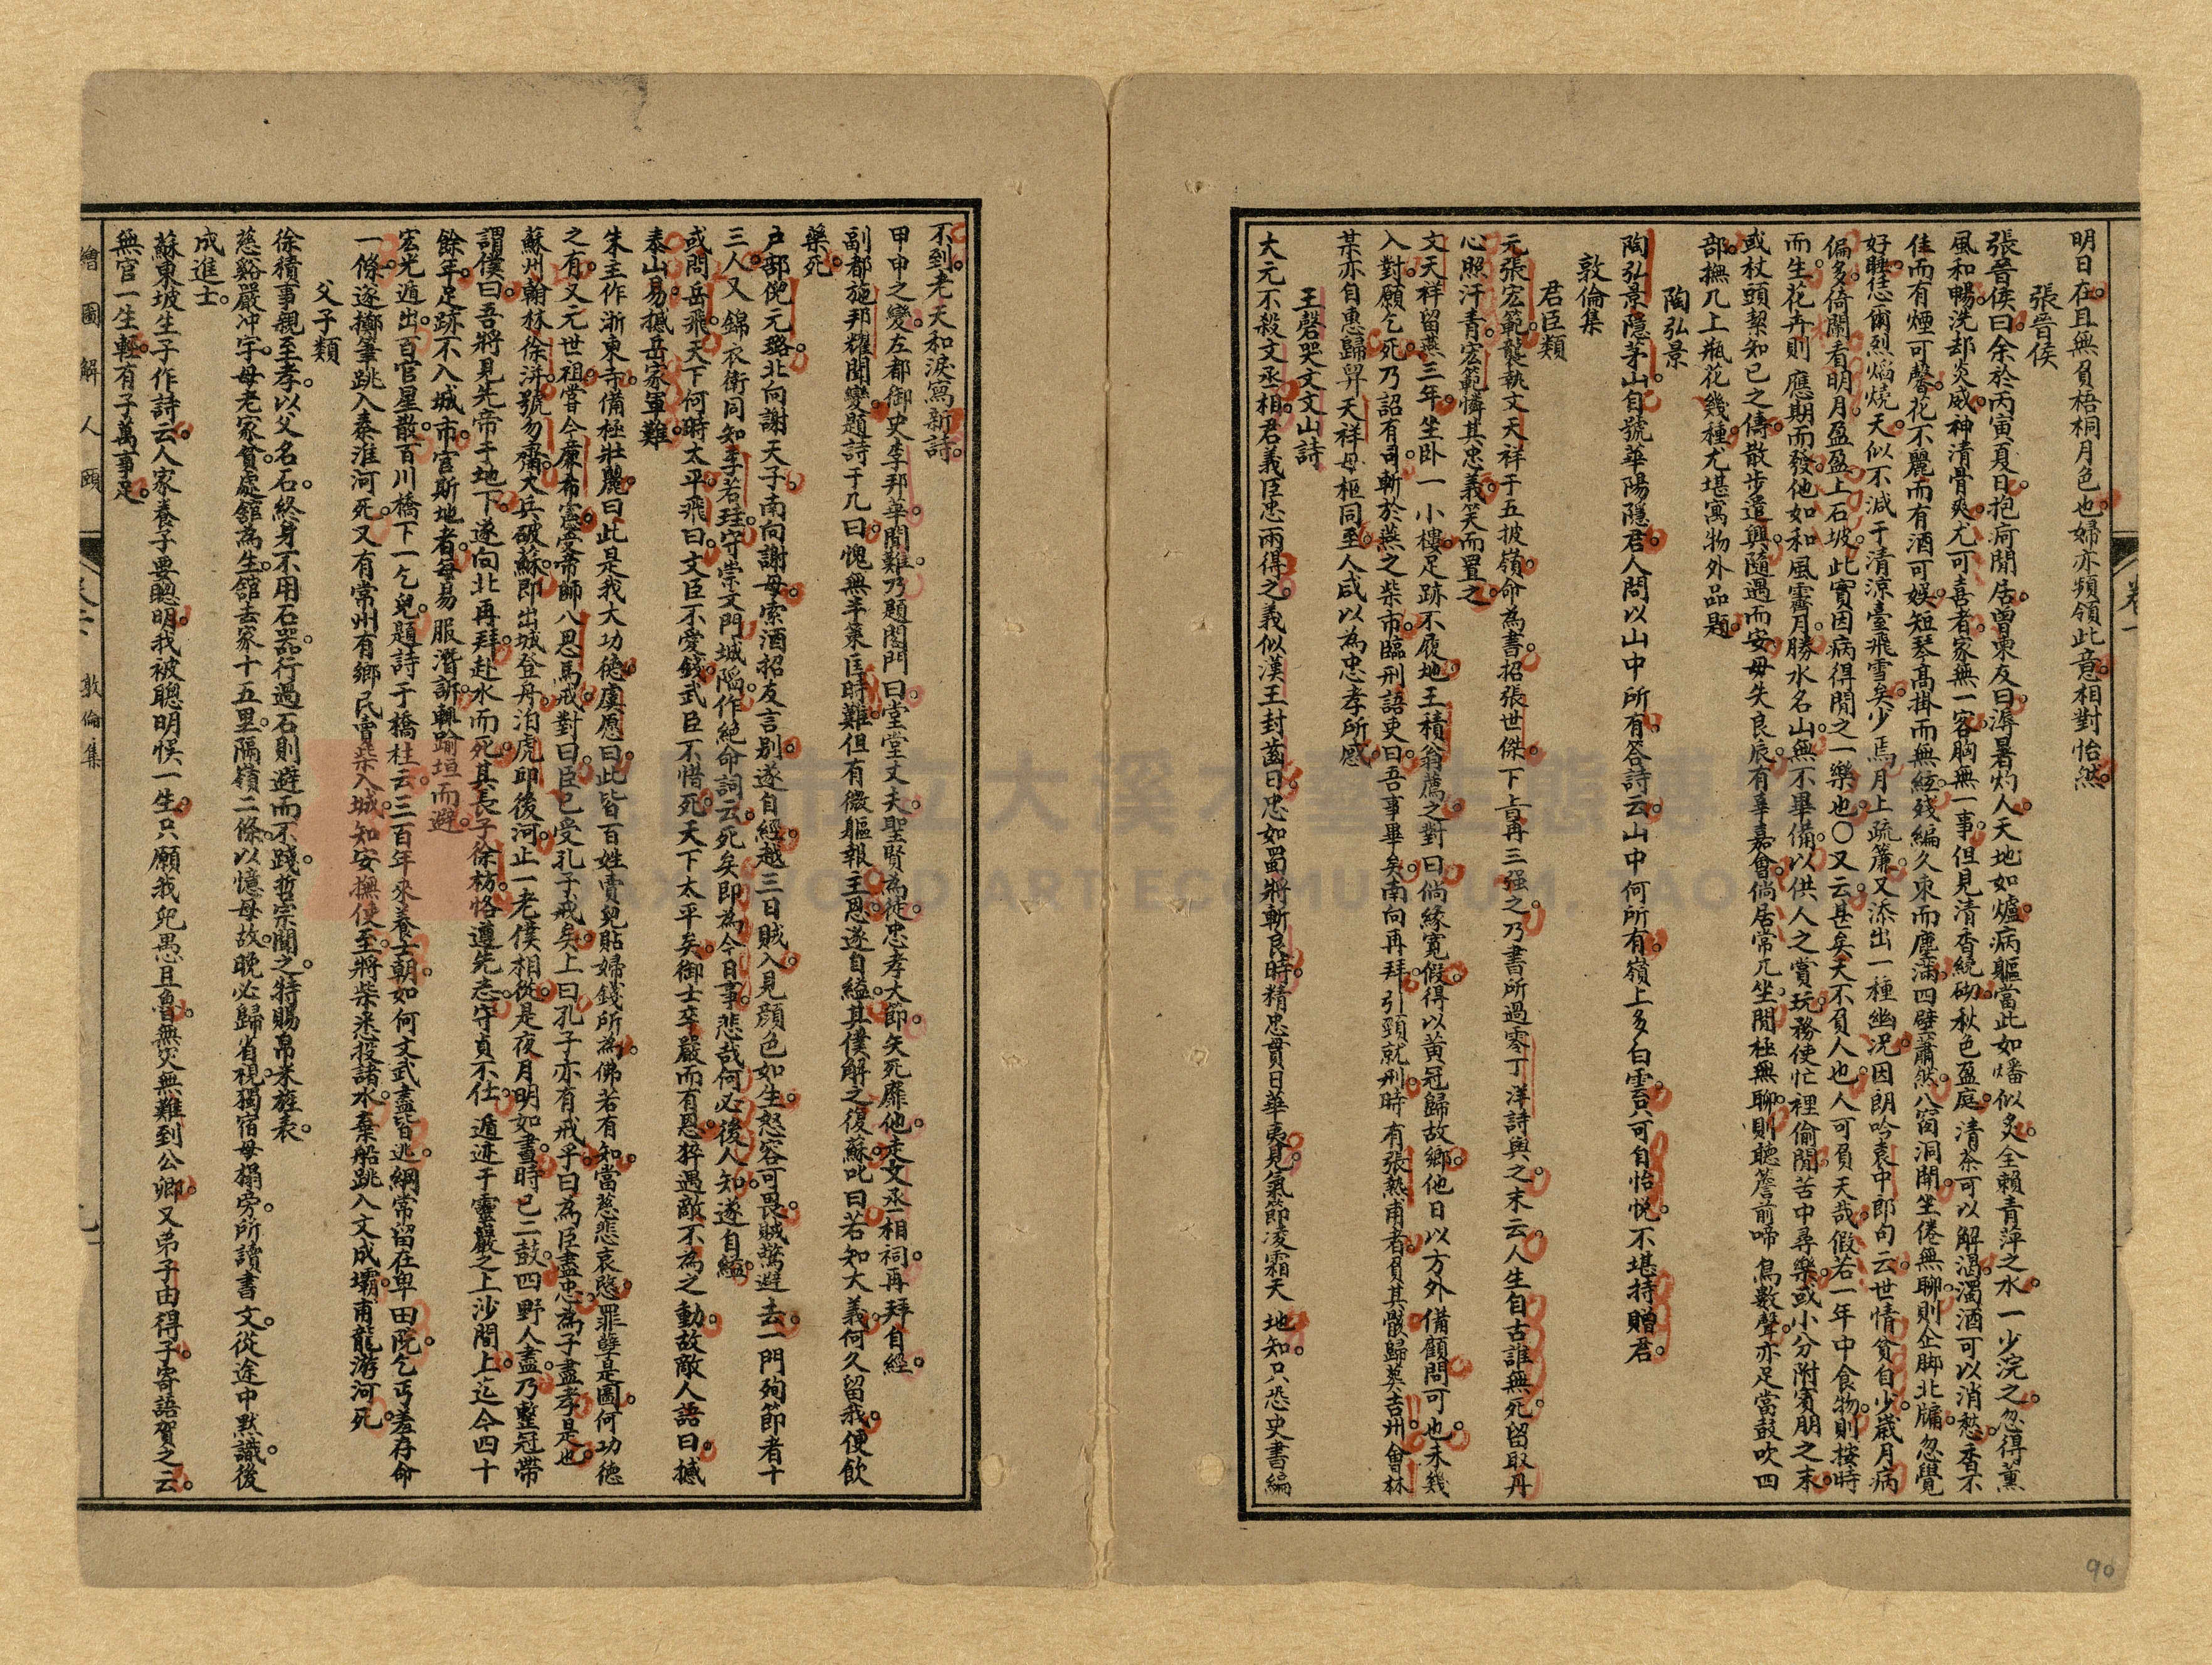 明日在且無負梧桐月色也婦亦頻領此意相對怡然
張晉侯
張晉侯曰余於丙寅夏日抱疴閒居曾東友曰溽暑灼人天地如爐病軀當此如燔似炙全賴青萍之水一少浣之忽得薰
風和暢洗却炎威神清骨爽尤可喜者家無一客胸無一事但見清香繞砌秋色盈庭清茶可以解渴濁酒可以消愁香不
佳而有煙可馨花不麗而有酒可娛短琴高掛而無絃殘編久束而塵滿四壁蕭然八窗洞開坐倦無聊則企脚北牖忽覺
好睡恁爾烈焰燒天似不減于清涼臺飛雪矣少焉月上疏簾又添出一種幽況因朗吟袁中郎句云世情貧自少歲月病
偏多倚闌看明月盈盈上石坡此實因病得閒之一樂也〇又云甚矣天不負人也人可負天哉假若一年中食物則按時
而生花卉則應期而發他如和風霽月勝水名山無不畢備以供人之賞玩務使忙裡偷閒苦中尋樂或小分附賓朋之末
或杖頭挈知己之儔散步遣興隨遇而安毋失良辰有辜嘉會倘居常兀坐閒極無聊則聽簷前啼鳥數聲亦足當鼓吹四
部撫几上瓶花幾種尤堪寓物外品題
陶弘景
陶弘景隱茅山自號華陽隱君人問以山中所有答詩云山中何所有嶺上多白雲只可自怡悅不堪持贈君
敦倫集
君臣類
元張宏範襲執文天祥于五披嶺命為書招張世傑下旨再三强之乃書所過零丁洋詩與之末云人生自古誰無死留取丹
心照汗青宏範憐其忠義笑而置之
文天祥留燕三年坐卧一小樓足跡不履地王積翁薦之對曰倘緣寬假得以黃冠歸故鄉他日以方外備顧問可也未幾
入對願乞死乃詔有司斬於燕之柴市臨刑語吏曰吾事畢矣南向再拜引頸就刑時有張熱甫者負其骸歸葬吉州會林
某亦自惠歸舁天祥母柩同至人咸以為忠孝所感
王磬哭文文山詩
大元不殺文丞相君義臣忠兩得之義似漢王封齒日忠如蜀將斬良時精忠貫日華夷見氣節凌霜天地知只恐史書編
不到老天和淚寫新詩
甲申之變左都御史李邦華聞難乃題閣門曰堂堂丈夫聖賢為徒忠孝大節矢死靡他走文丞相祠再拜自經
副都施邦耀聞變題詩于几曰愧無半策匡時難但有微軀報主恩遂自縊其僕解之復蘇叱曰若知大義何久留我便飲
藥死
户部倪元璐北向謝天子南向謝母索酒招友言别遂自經越三日賊入見顔色如生怒容可畏賊驚避去一門殉節者十
三人又錦衣衛同知李若珪守崇文門城陷作絶命詞云死矣即為今日事悲哉何必後人知遂自縊
或問岳飛天下何時太平飛曰文臣不愛錢武臣不惜死天下太平矣御士卒嚴而有恩猝遇敵不為之動故敵人語曰撼
泰山易撼岳家軍難
朱主作浙東寺備極壯麗曰此是我大功德虞愿曰此皆百姓賣兒貼婦錢所為佛若有知當慈悲哀愍罪孽是圖何功德
之有又元世祖嘗令廉布憲受帝師八思馬戒對曰臣已受孔子戒矣上曰孔子亦有戒乎曰為臣盡忠為子盡孝是也
蘇州翰林徐汧號勿齋大兵破蘇即出城登舟泊虎邱後河止一老僕相從是夜月明如晝時已二鼓四野人盡乃整冠帶
謂僕曰吾將見先帝于地下遂向北再拜赴水而死其長子徐枋恪遵先志守貞不仕遁迹于靈巖之上沙間上迄今四十
餘年足跡不入城市官斯地者每易服潛訴輒踰垣而避
宏光遁出百官星散百川橋下一乞兒題詩于橋柱云三百年來養士朝如何文武盡皆逃綱常留在卑田院乞丐羞存命
一條遂擲筆跳入秦淮河死又有常州有鄉民賣柴入城知安撫使至將柴悉投諸水棄船跳入文成壩甫龍游河死
父子類
徐積事親至孝以父名石終身不用石器行過石則避而不踐哲宗聞之特賜帛米旌表
慈谿嚴冲宇母老家貧處舘為生舘去家十五里隔嶺二條以憶母故晚必歸省視獨宿母榻旁所讀書文從途中默識後
成進士
蘇東坡生子作詩云人家養子要聰明我被聰明悞一生只願我兒愚且魯無災無難到公卿又弟子由得子寄語賀之云
無官一生輕有子萬事足
繪圖解人頤
敦倫集